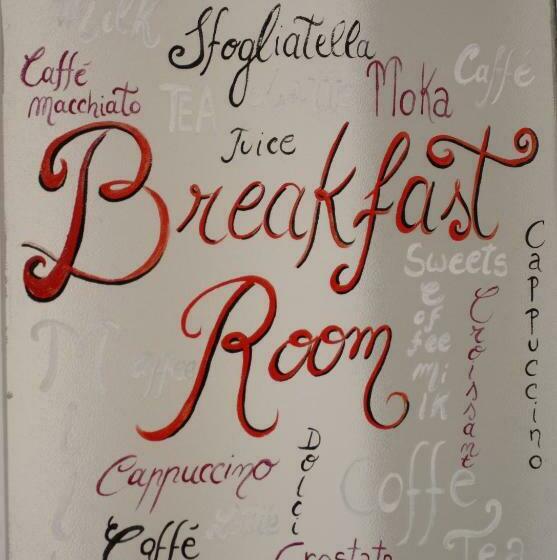 Milk
Sfogliatella
Caffé
macchiato
TEA
Moka
Caffé
Juice
Breakfast
Room
Cappuccino
Sweets
Coffee
milk
Croissant
Coffee
Cappuccino
Dolci
Coffee
Caffé
Latte
Crostata
Tea